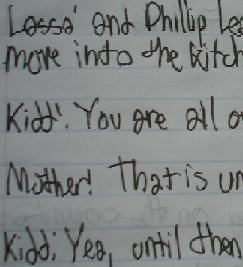 Lassa' and Phillip Lea
move into the kitch
Kidd: You are all a
Mother: That is un
Kidd: Yea, until then